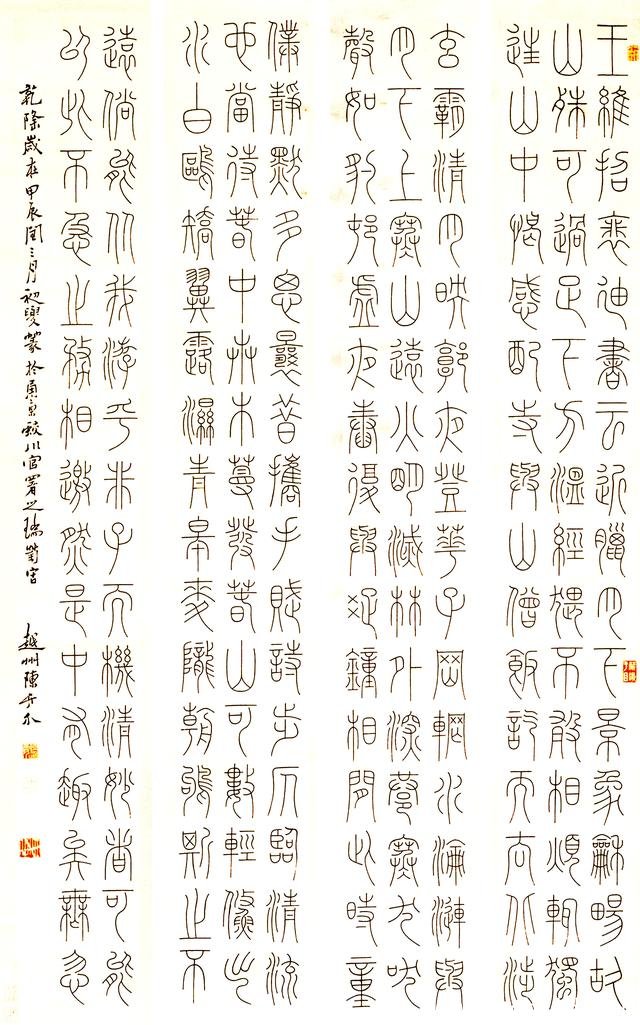 王維招裴迪書云近臘月下景象龢暢故
山殊可過足下方溫經猥不敢相煩輒獨
往山中憩感配寺與山僧飯訖而去北涉
玄霸清月映郭夜登華子岡輞水淪漣與
月下上寒山遠火明滅林外深巷寒犬吠
聲如豹村虛夜舂復與疏鐘相間此時童
僕靜默多思曩昔攜手賦詩步仄臨清流
也當待春中草木蔓發春山可數輕鯈出
水白鷗矯翼露濕青皋麥隴朝雊斯止不
遠倘能從我游乎非子天機清妙者可能
以此不急之務相邀然是中有趣矣無忽
乾隆歲在甲辰閏三月初篆於蛟川官署之
越州陳